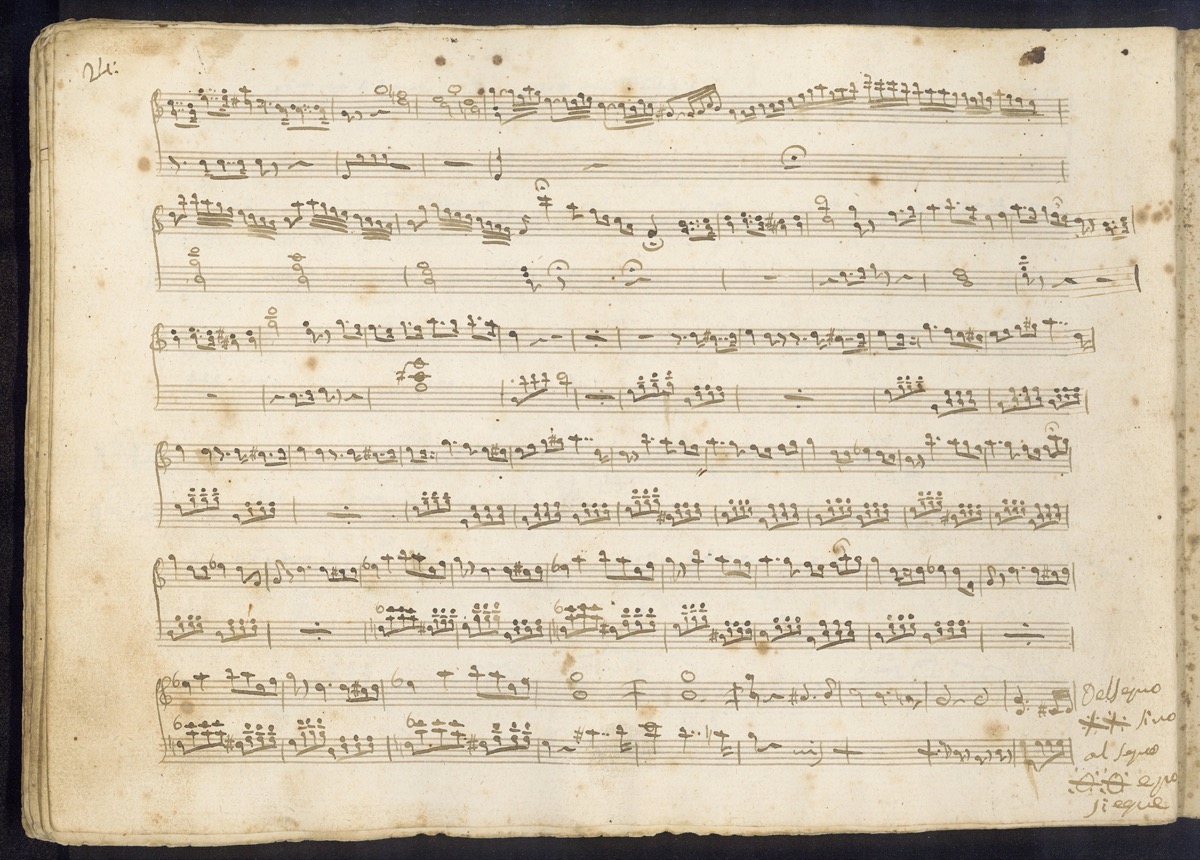 24:
Dal segno
sino
al segno
e poi
siegue